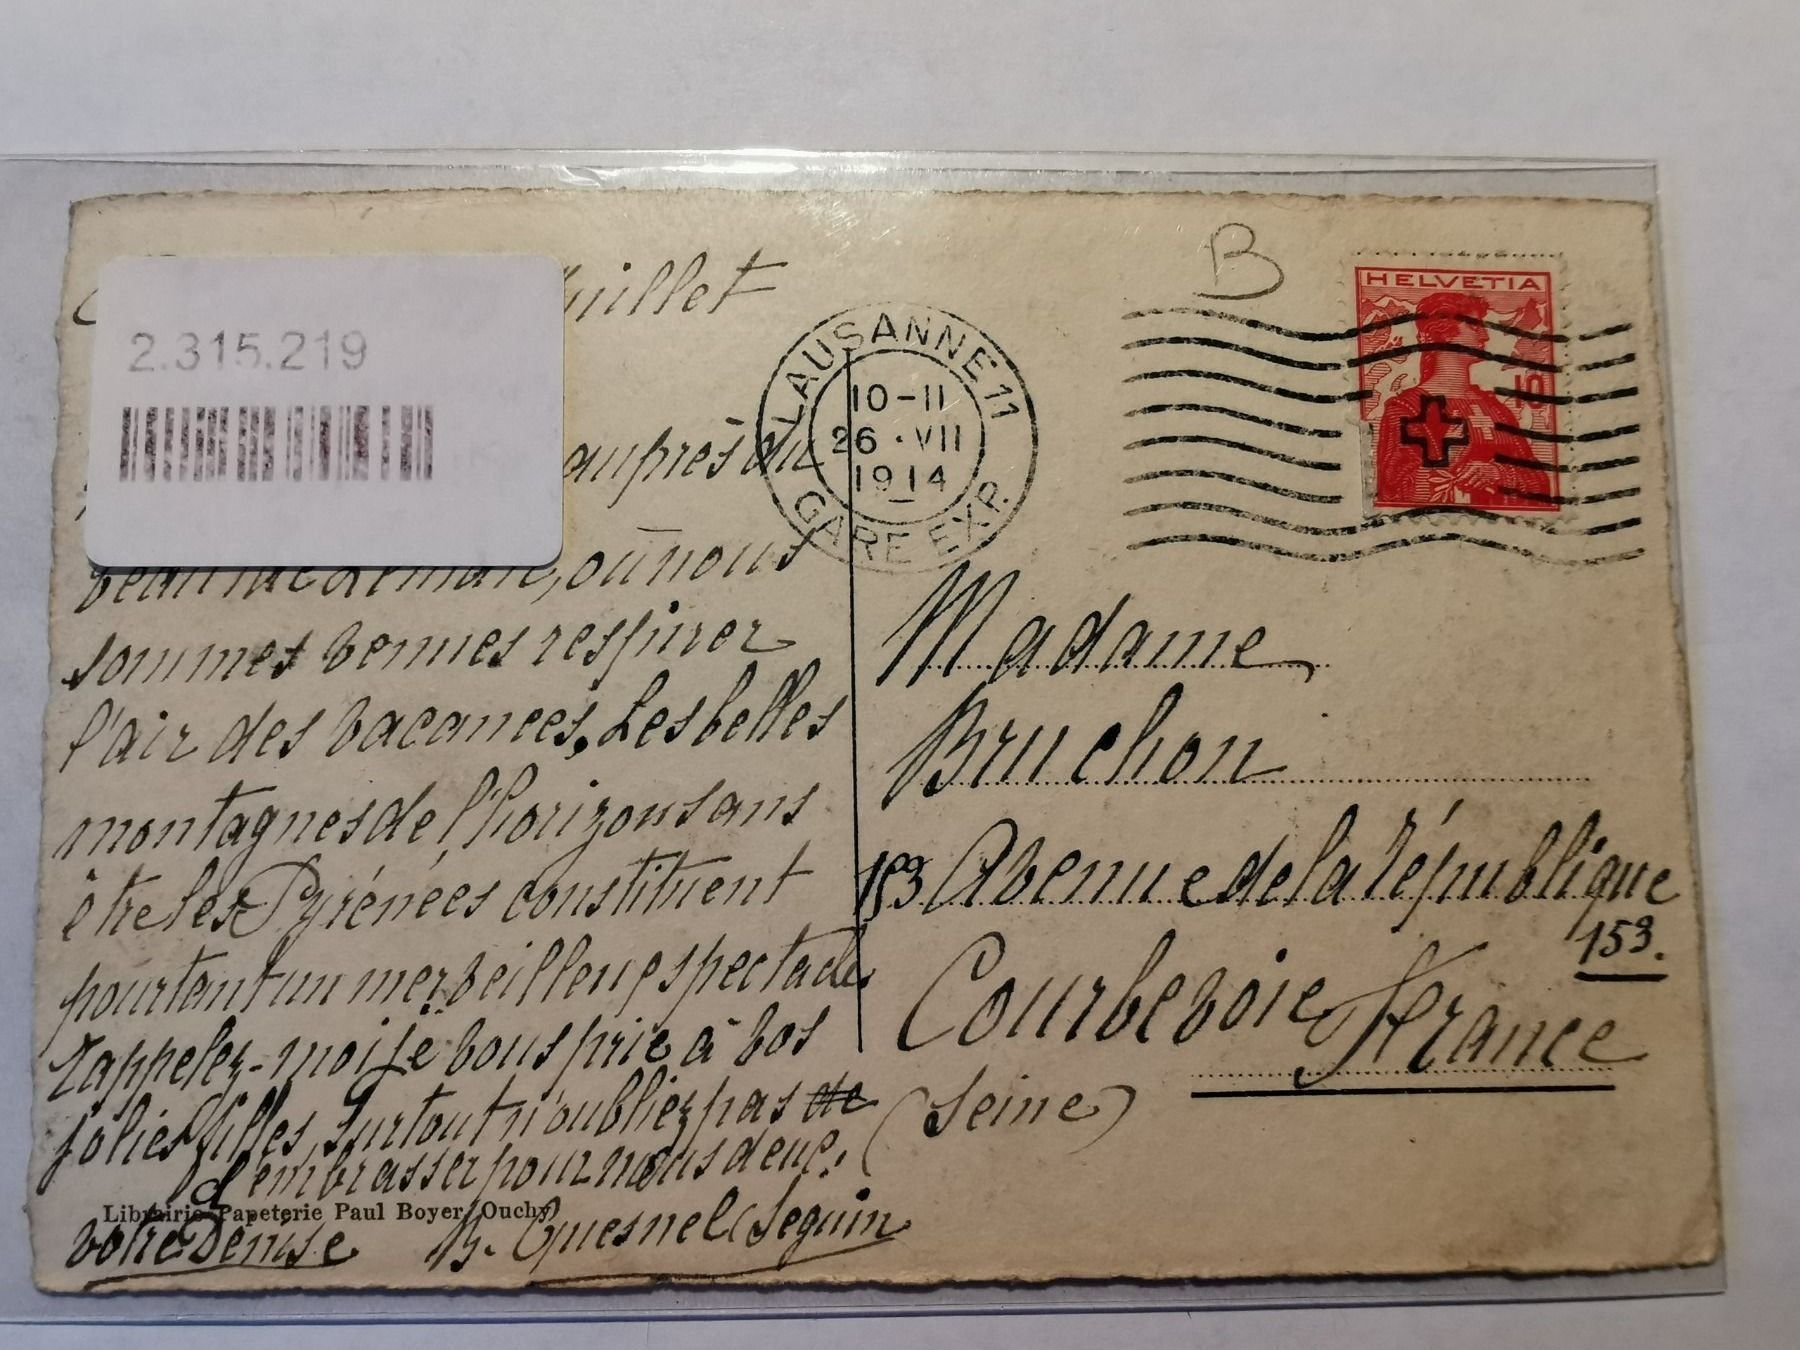 2.315.219
Juillet
auprès du
beau lac Léman, où nous
sommes venues respirer
l'air des vacances. Les belles
montagnes de l'horizon sans
être les Pyrénées constituent
pourtant un merveilleux spectacle
rappelez-moi je vous prie à vos
jolies filles, surtout n'oubliez pas de
d'embrasser pour nous deux.
Librairie-Papeterie Paul Boyer, Ouchy
votre Denise B. Quesnel Seguin
LAUSANNE 11
10-11
26·VII
1914
GARE EXP.
B
HELVETIA
Madame
Bruchon
153 Avenue de la République
153.
Courbevoie France
(Seine)